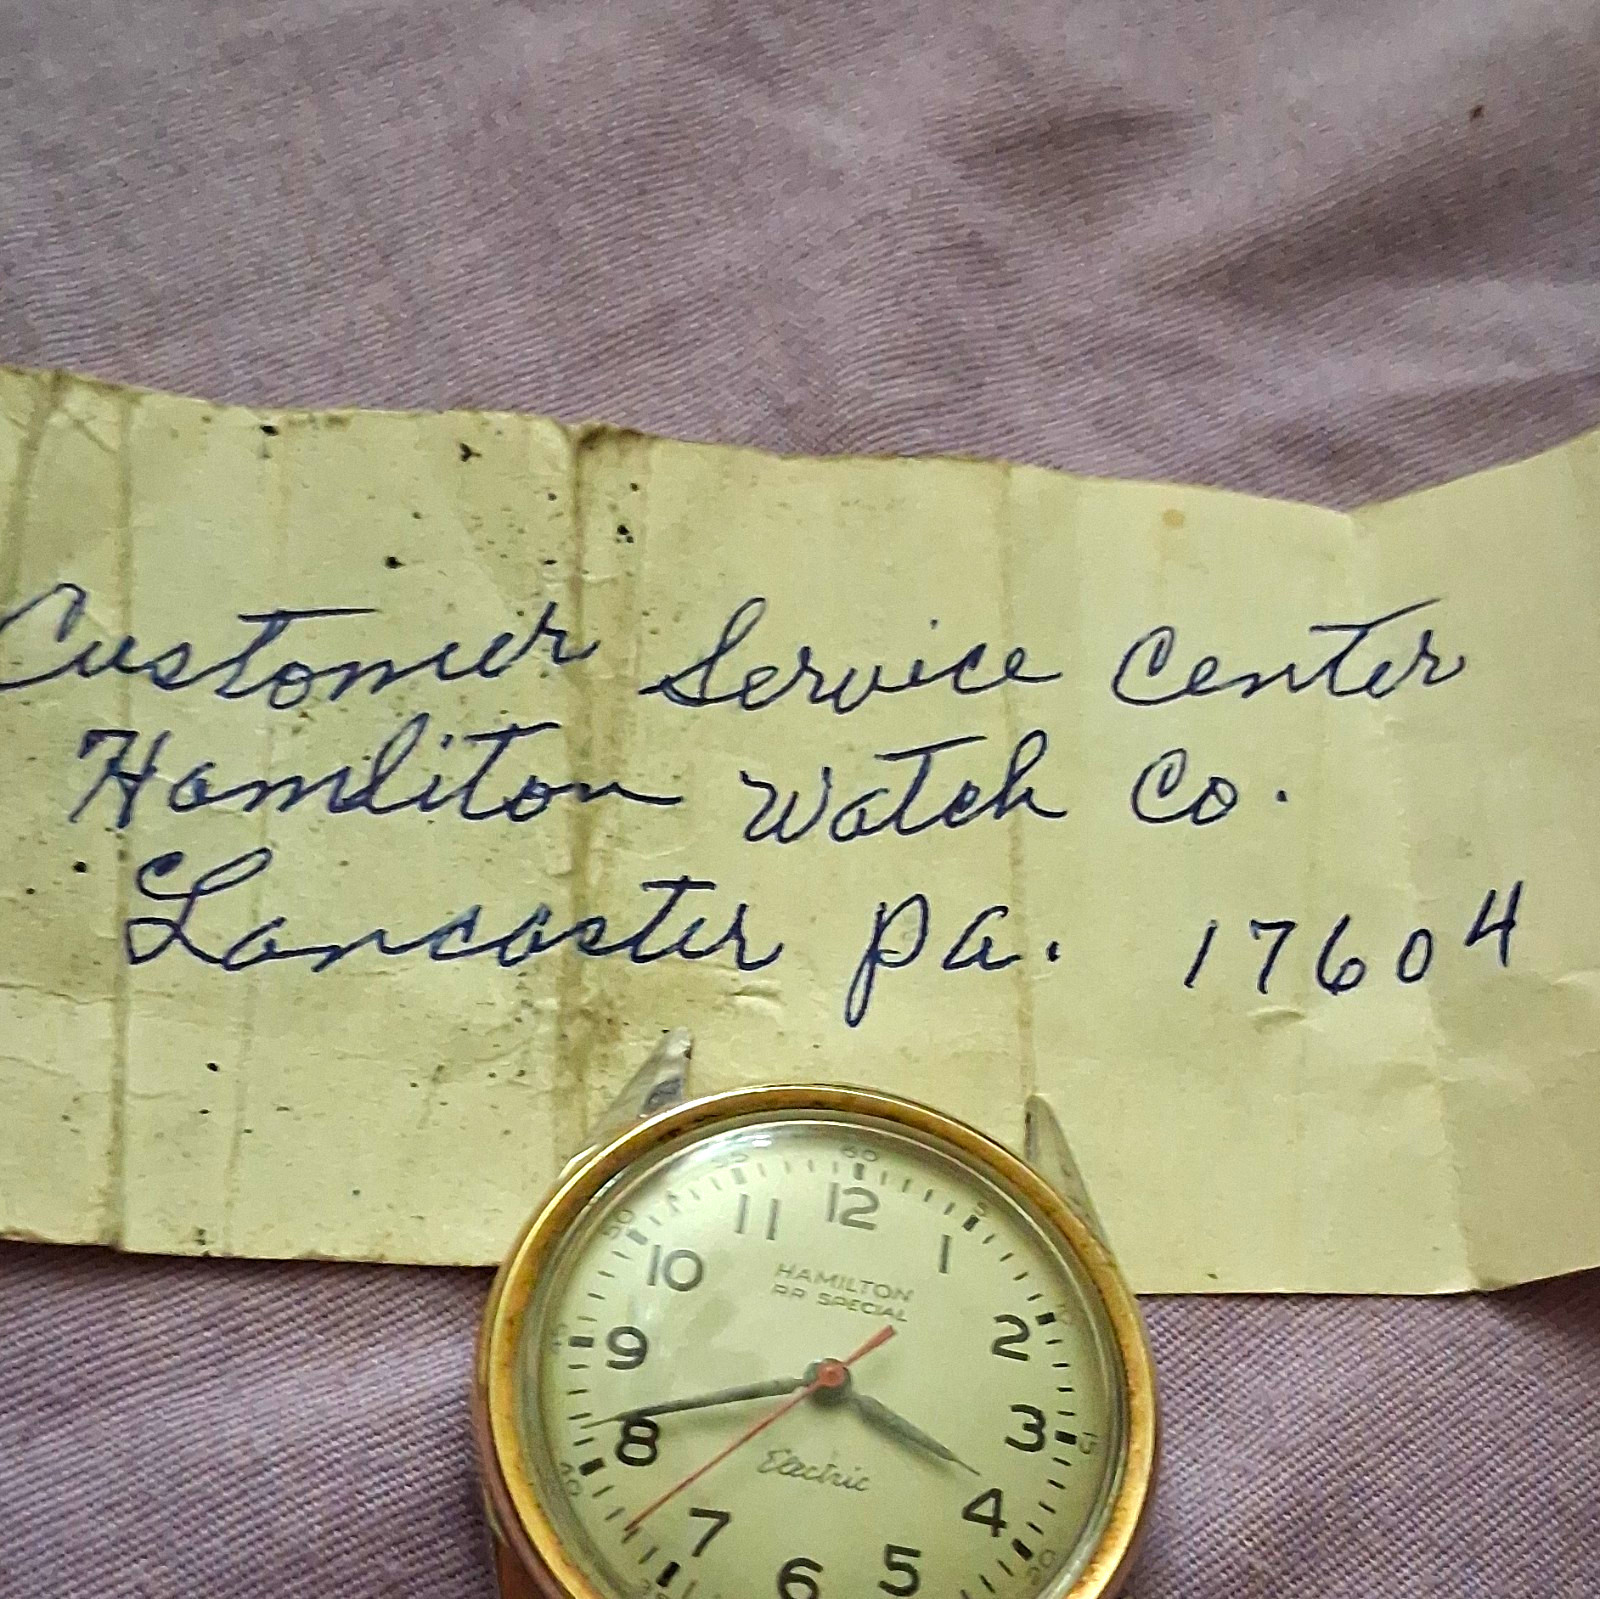 Customer Service Center
Hamliton Watch Co.
Lancaster Pa. 17604
60
55 5
12
11 1
50
10 2
HAMILTON
RR SPECIAL
9 3
15
8 4
Electric
40 20
7 5
6